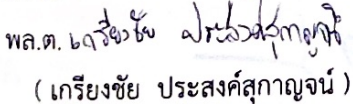 พล.ต. เกรียงชัย ประสงค์สุกาญจน์
( เกรียงชัย ประสงค์สุกาญจน์ )